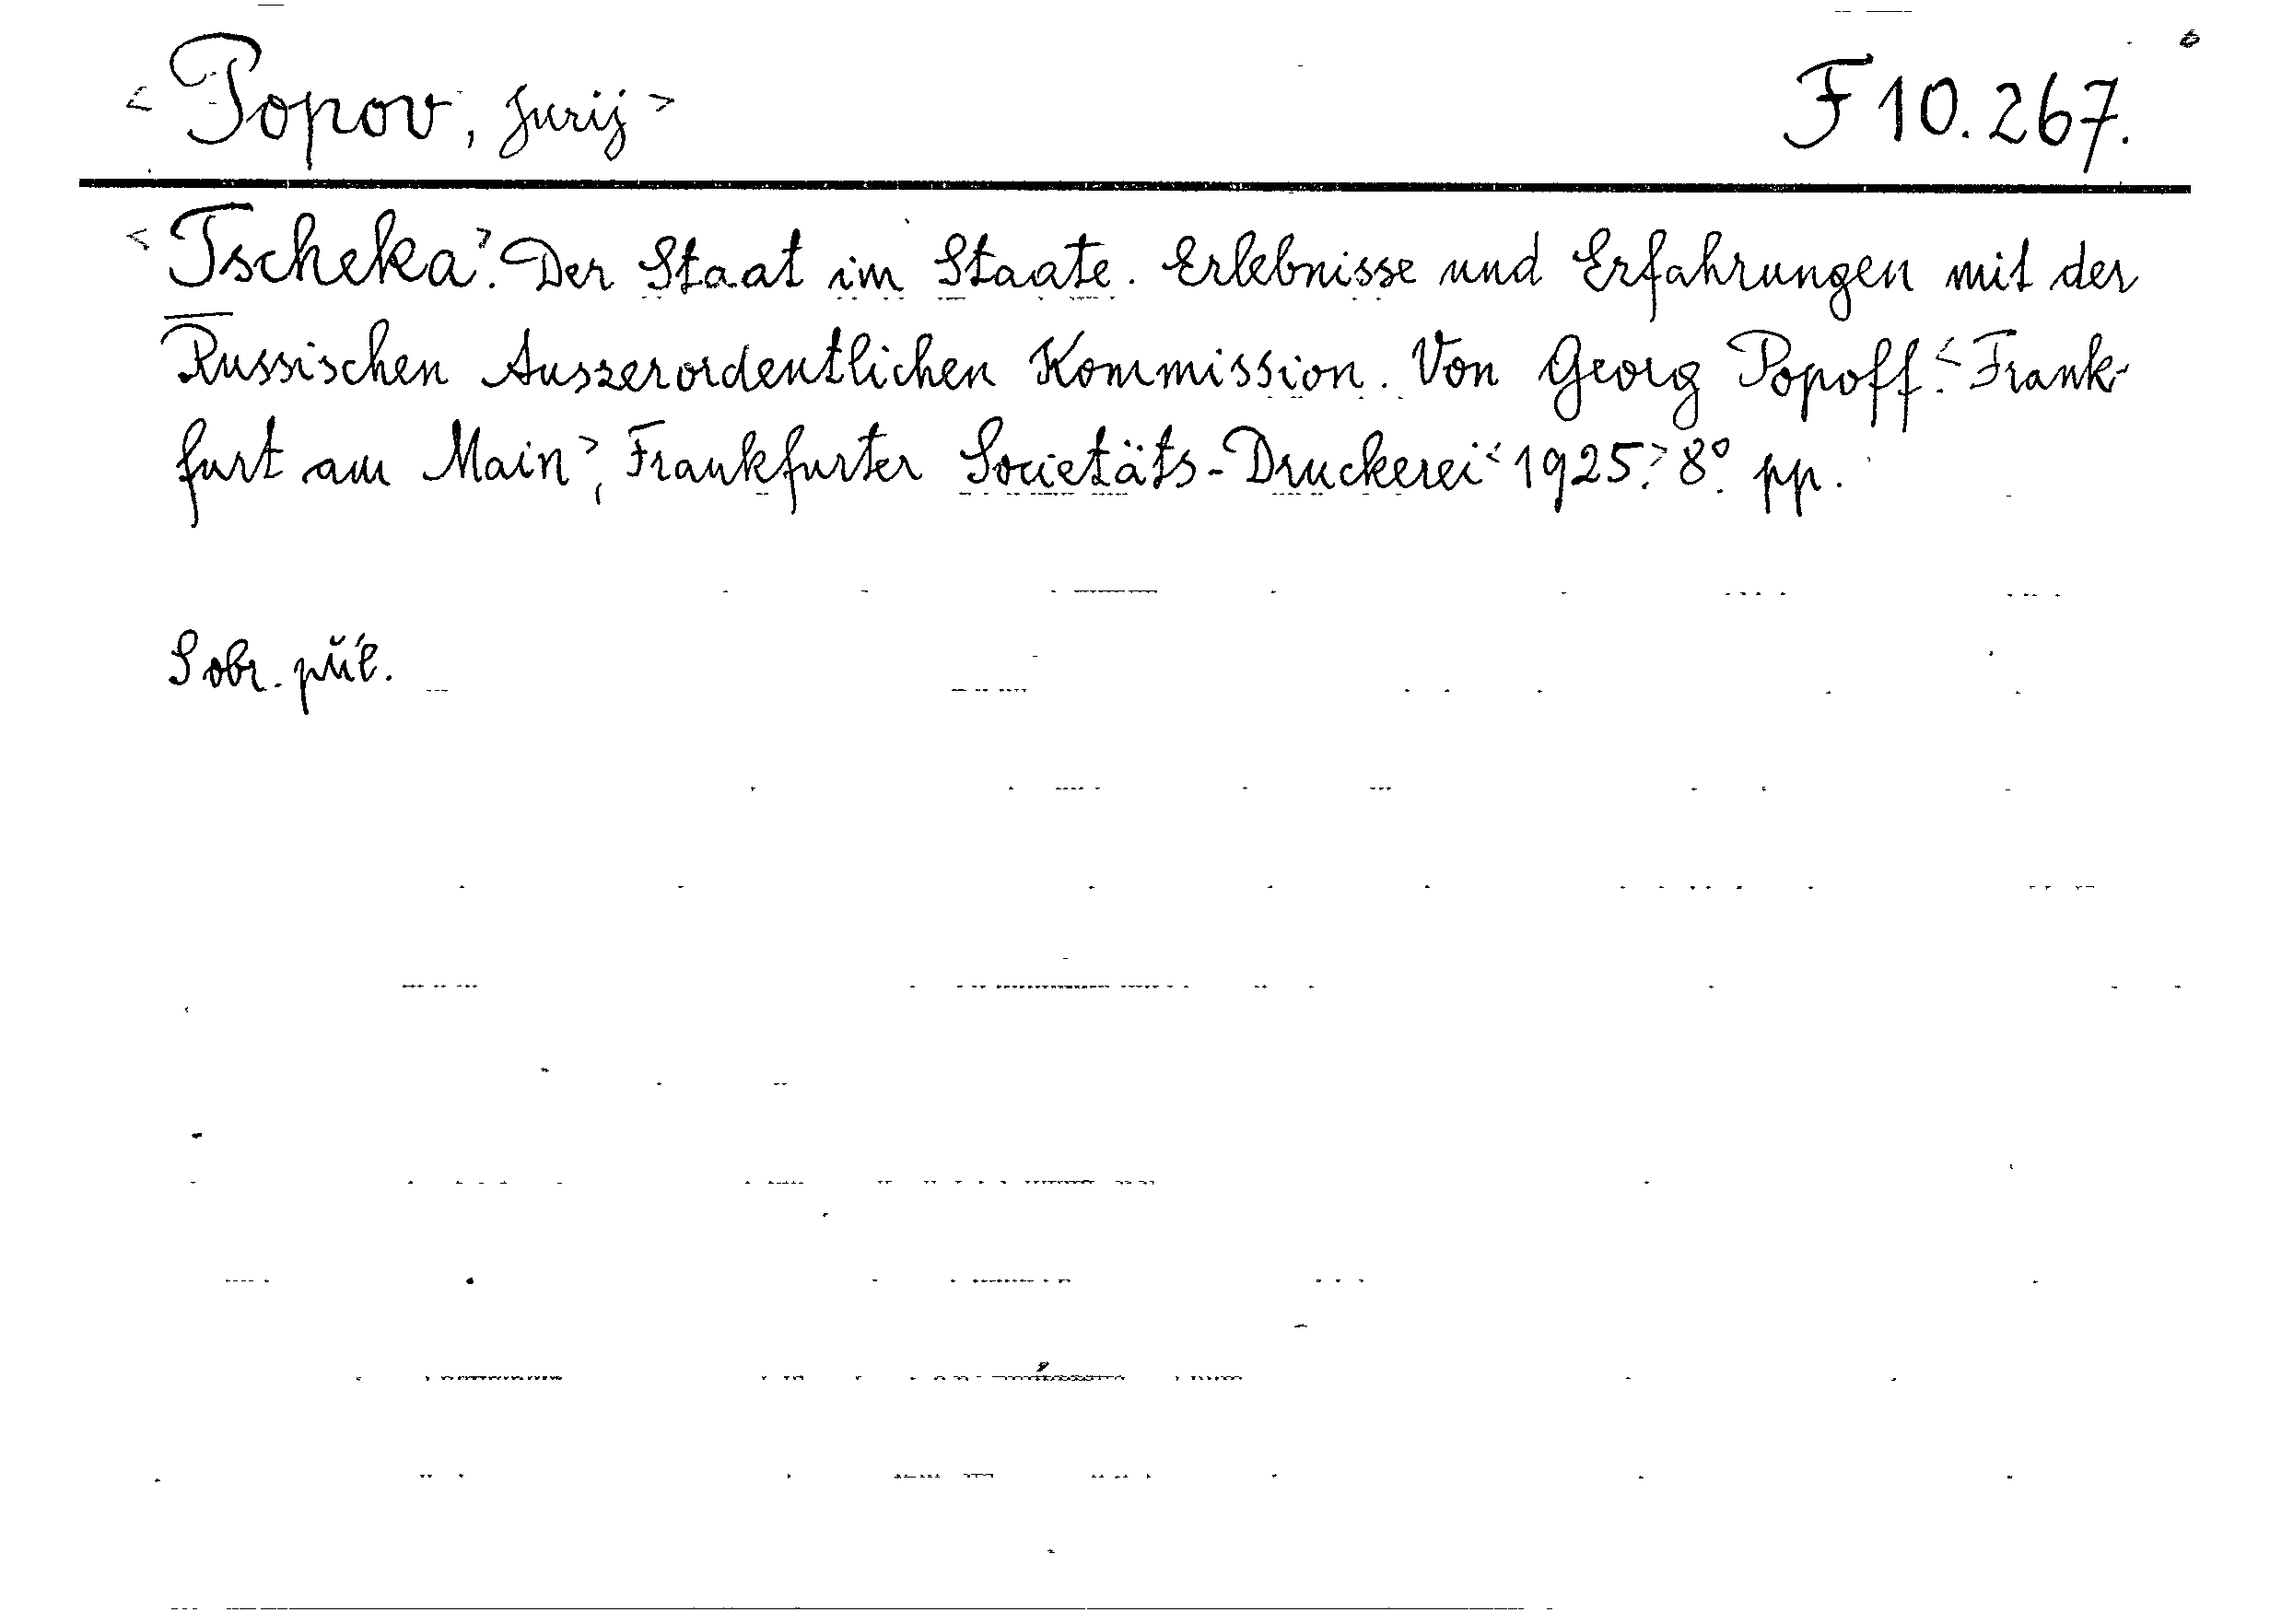 < Popov, Jurij >
F 10.267.
< Tscheka >. Der Staat im Staate. Erlebnisse und Erfahrungen mit der
Russischen Auszerordentlichen Kommission. Von Georg Popoff. < Frank-
furt am Main >, Frankfurter Societäts-Druckerei < 1925. > 8°. pp.
S obr. příl.